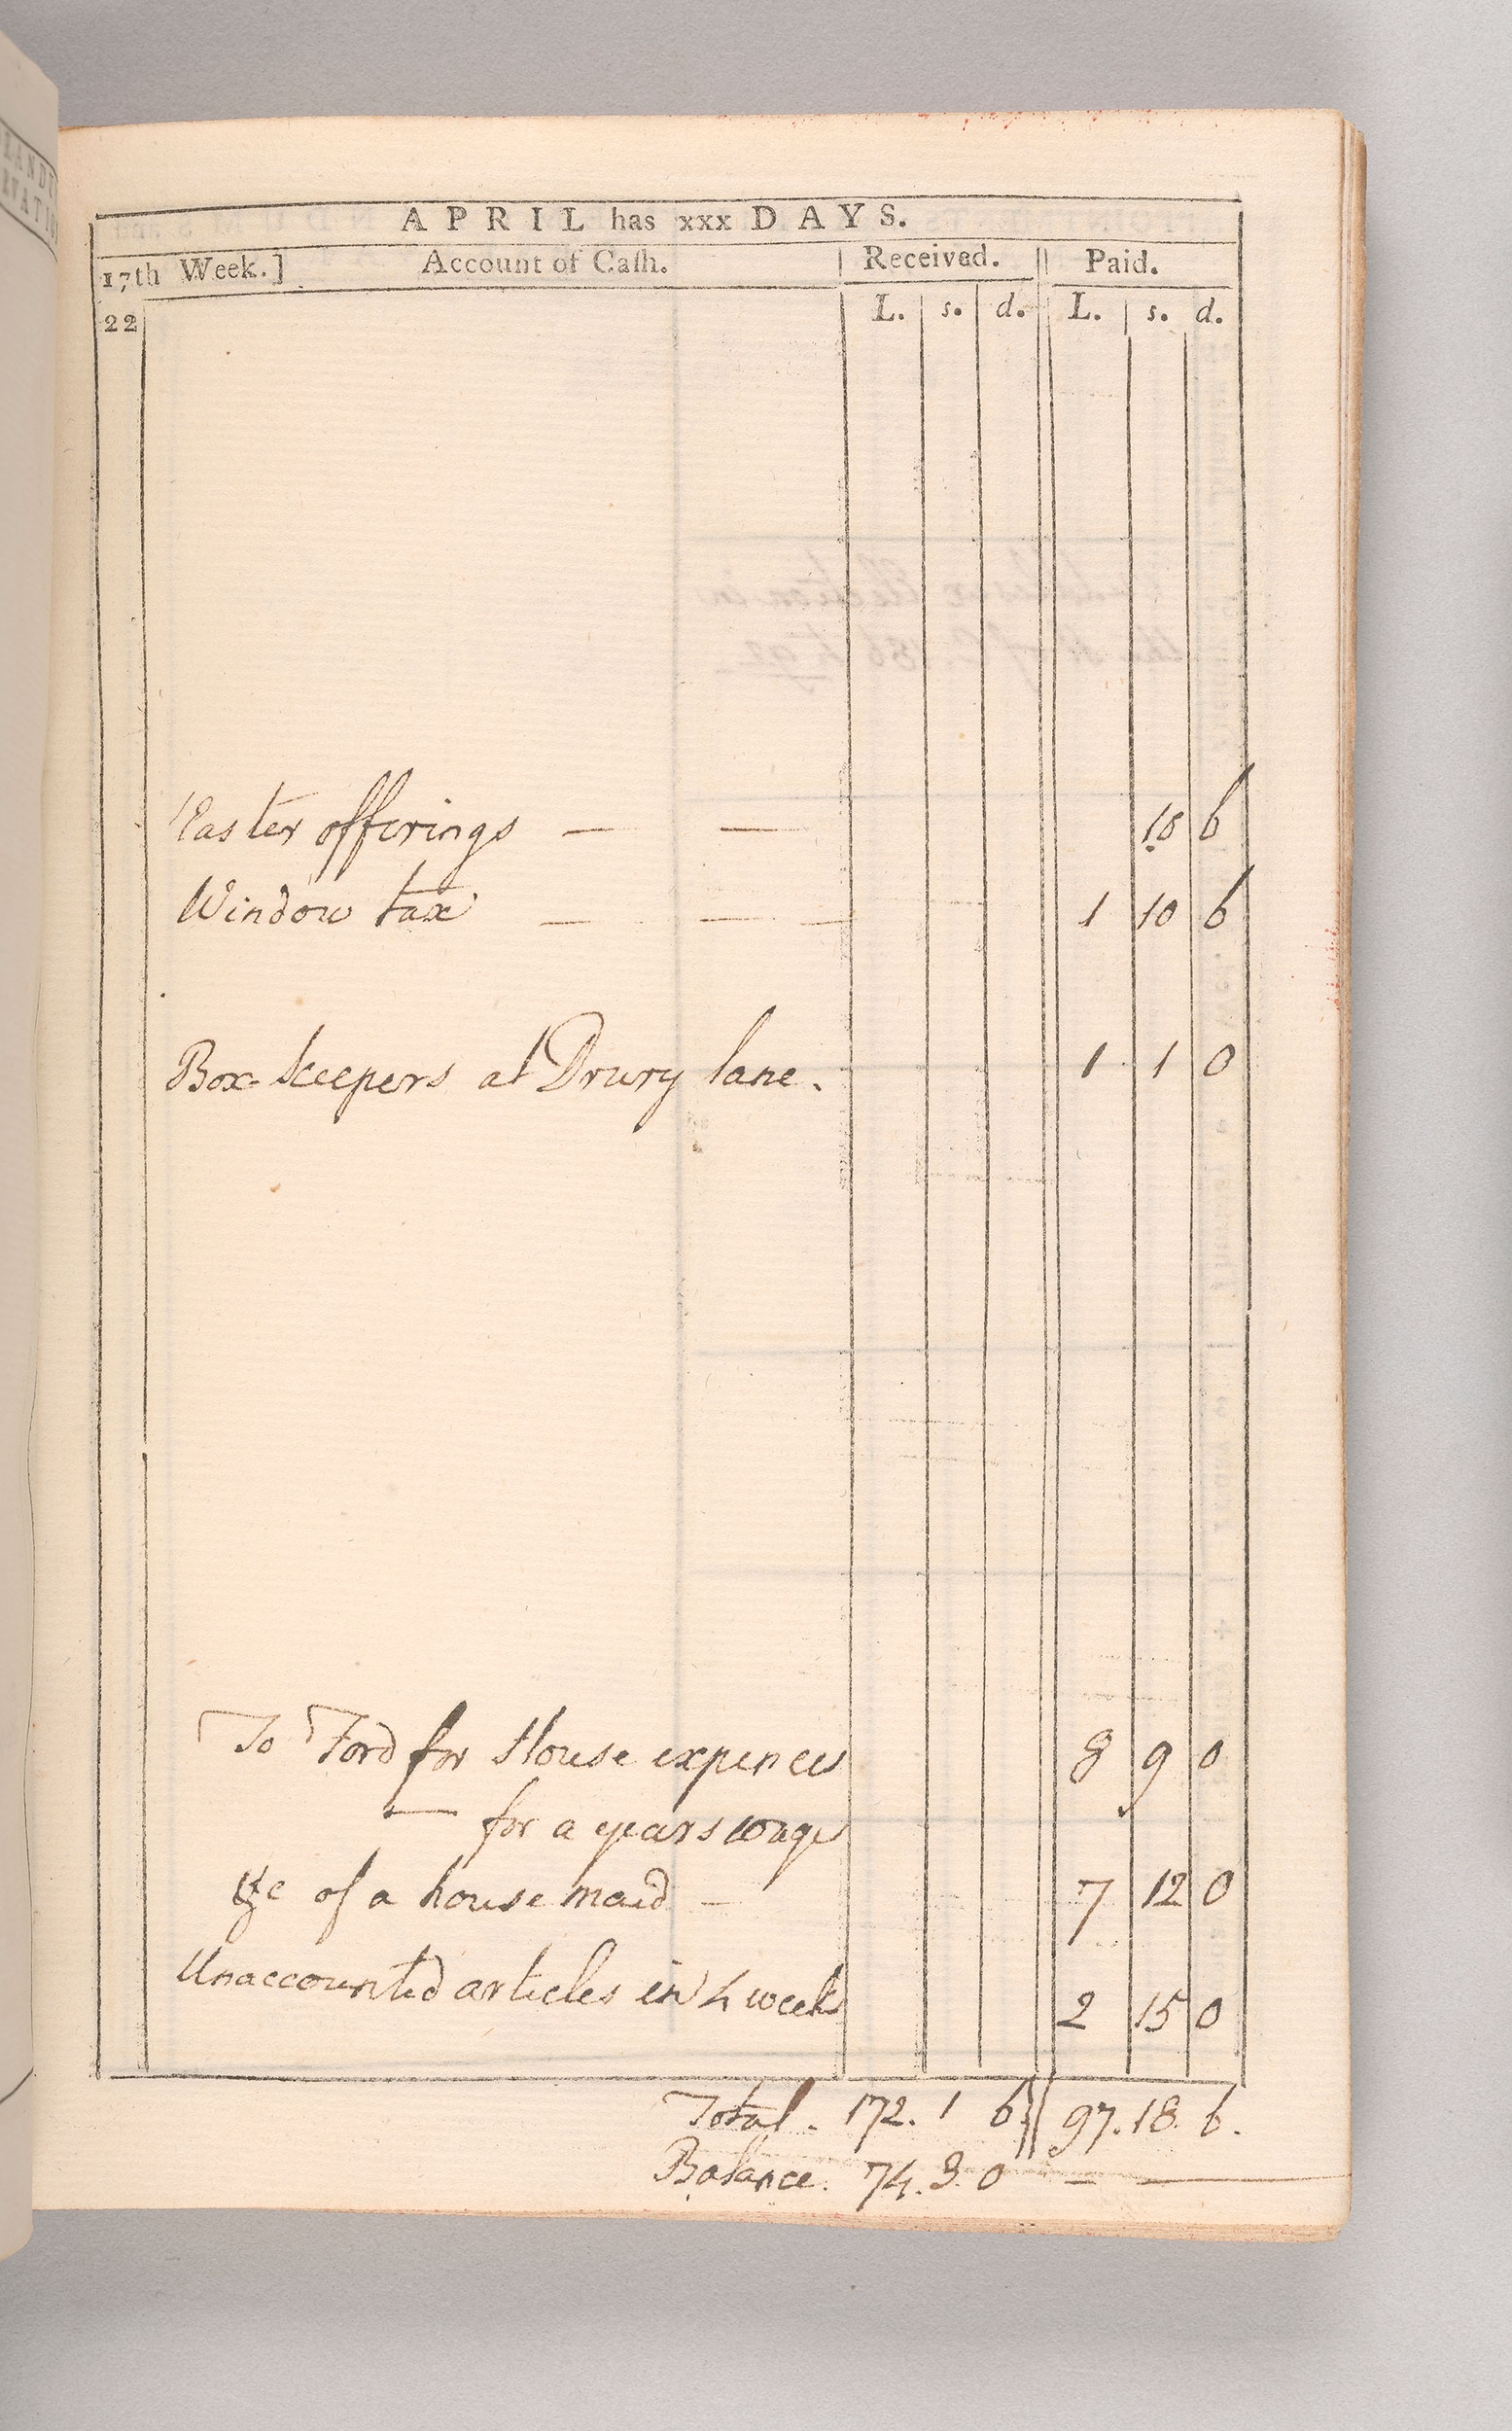 APRIL has xxx DAYS.
17th Week.] Account of Caſh. Received. Paid.
22 L. s. d. L. s. d.
Easter offerings — — 10 6
Window tax — — — 1 10 6
Box-keepers at Drury lane. 1 1 0
To Ford for House expences 8 9 0
— for a years wages
&c of a house maid — 7 12 0
Unaccounted articles in 4 weeks 2 15 0
Total. 172. 1 6 97. 18. 6.
Balance. 74. 3. 0 — —